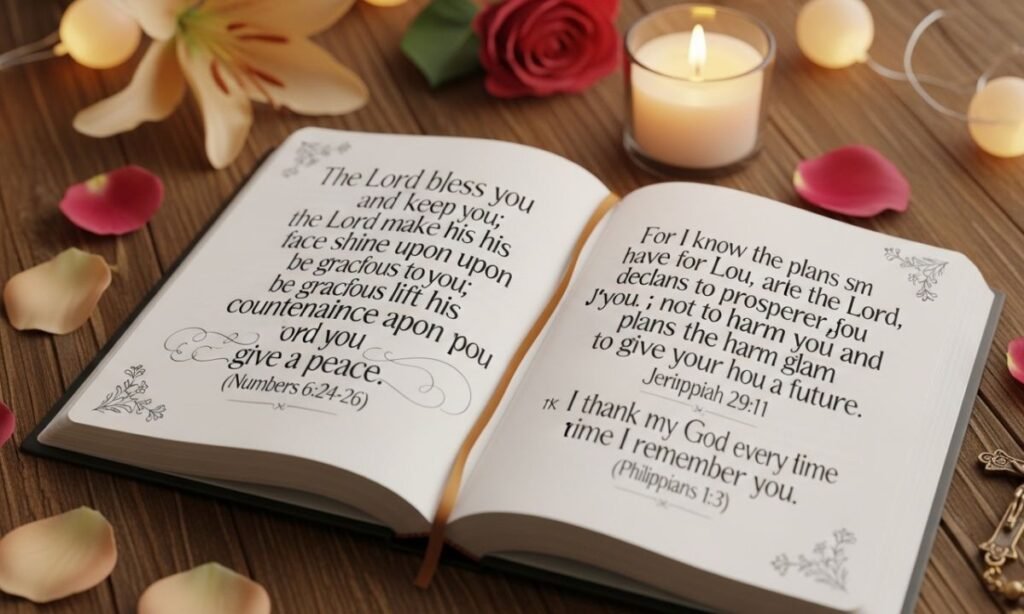 The Lord bless you
and keep you;
the Lord make his his
face shine upon upon
be gracfous to you;
be gracfous lift his
countenaince apon you
ord you
give a peace.
(Numbers 6:24-26)
For I know the plans sm
have for Lou, arle the Lord,
declans to prosperer you
J'you. ; not to harm you and
plans the harm glam
to give your hou a future.
Jerippiah 29:11
TK I thank my God every time
time I remember you.
(Philippians 1:3)